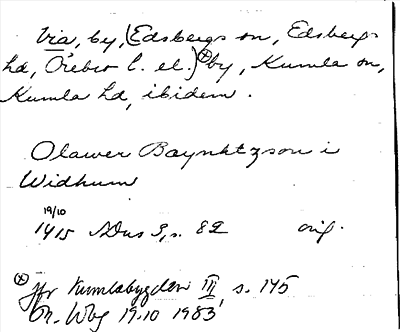 Via, by, (Edsbergs sn, Edsbergs
hd, Örebro l. el.) ⊗ by, Kumla sn,
Kumla hd, ibidem.
Olawer Baynktzson i
Widhum
19/10
1415 SDns 3, s. 82 orig.
⊗ Jfr Kumlabygden III, s. 145
19.10 1983